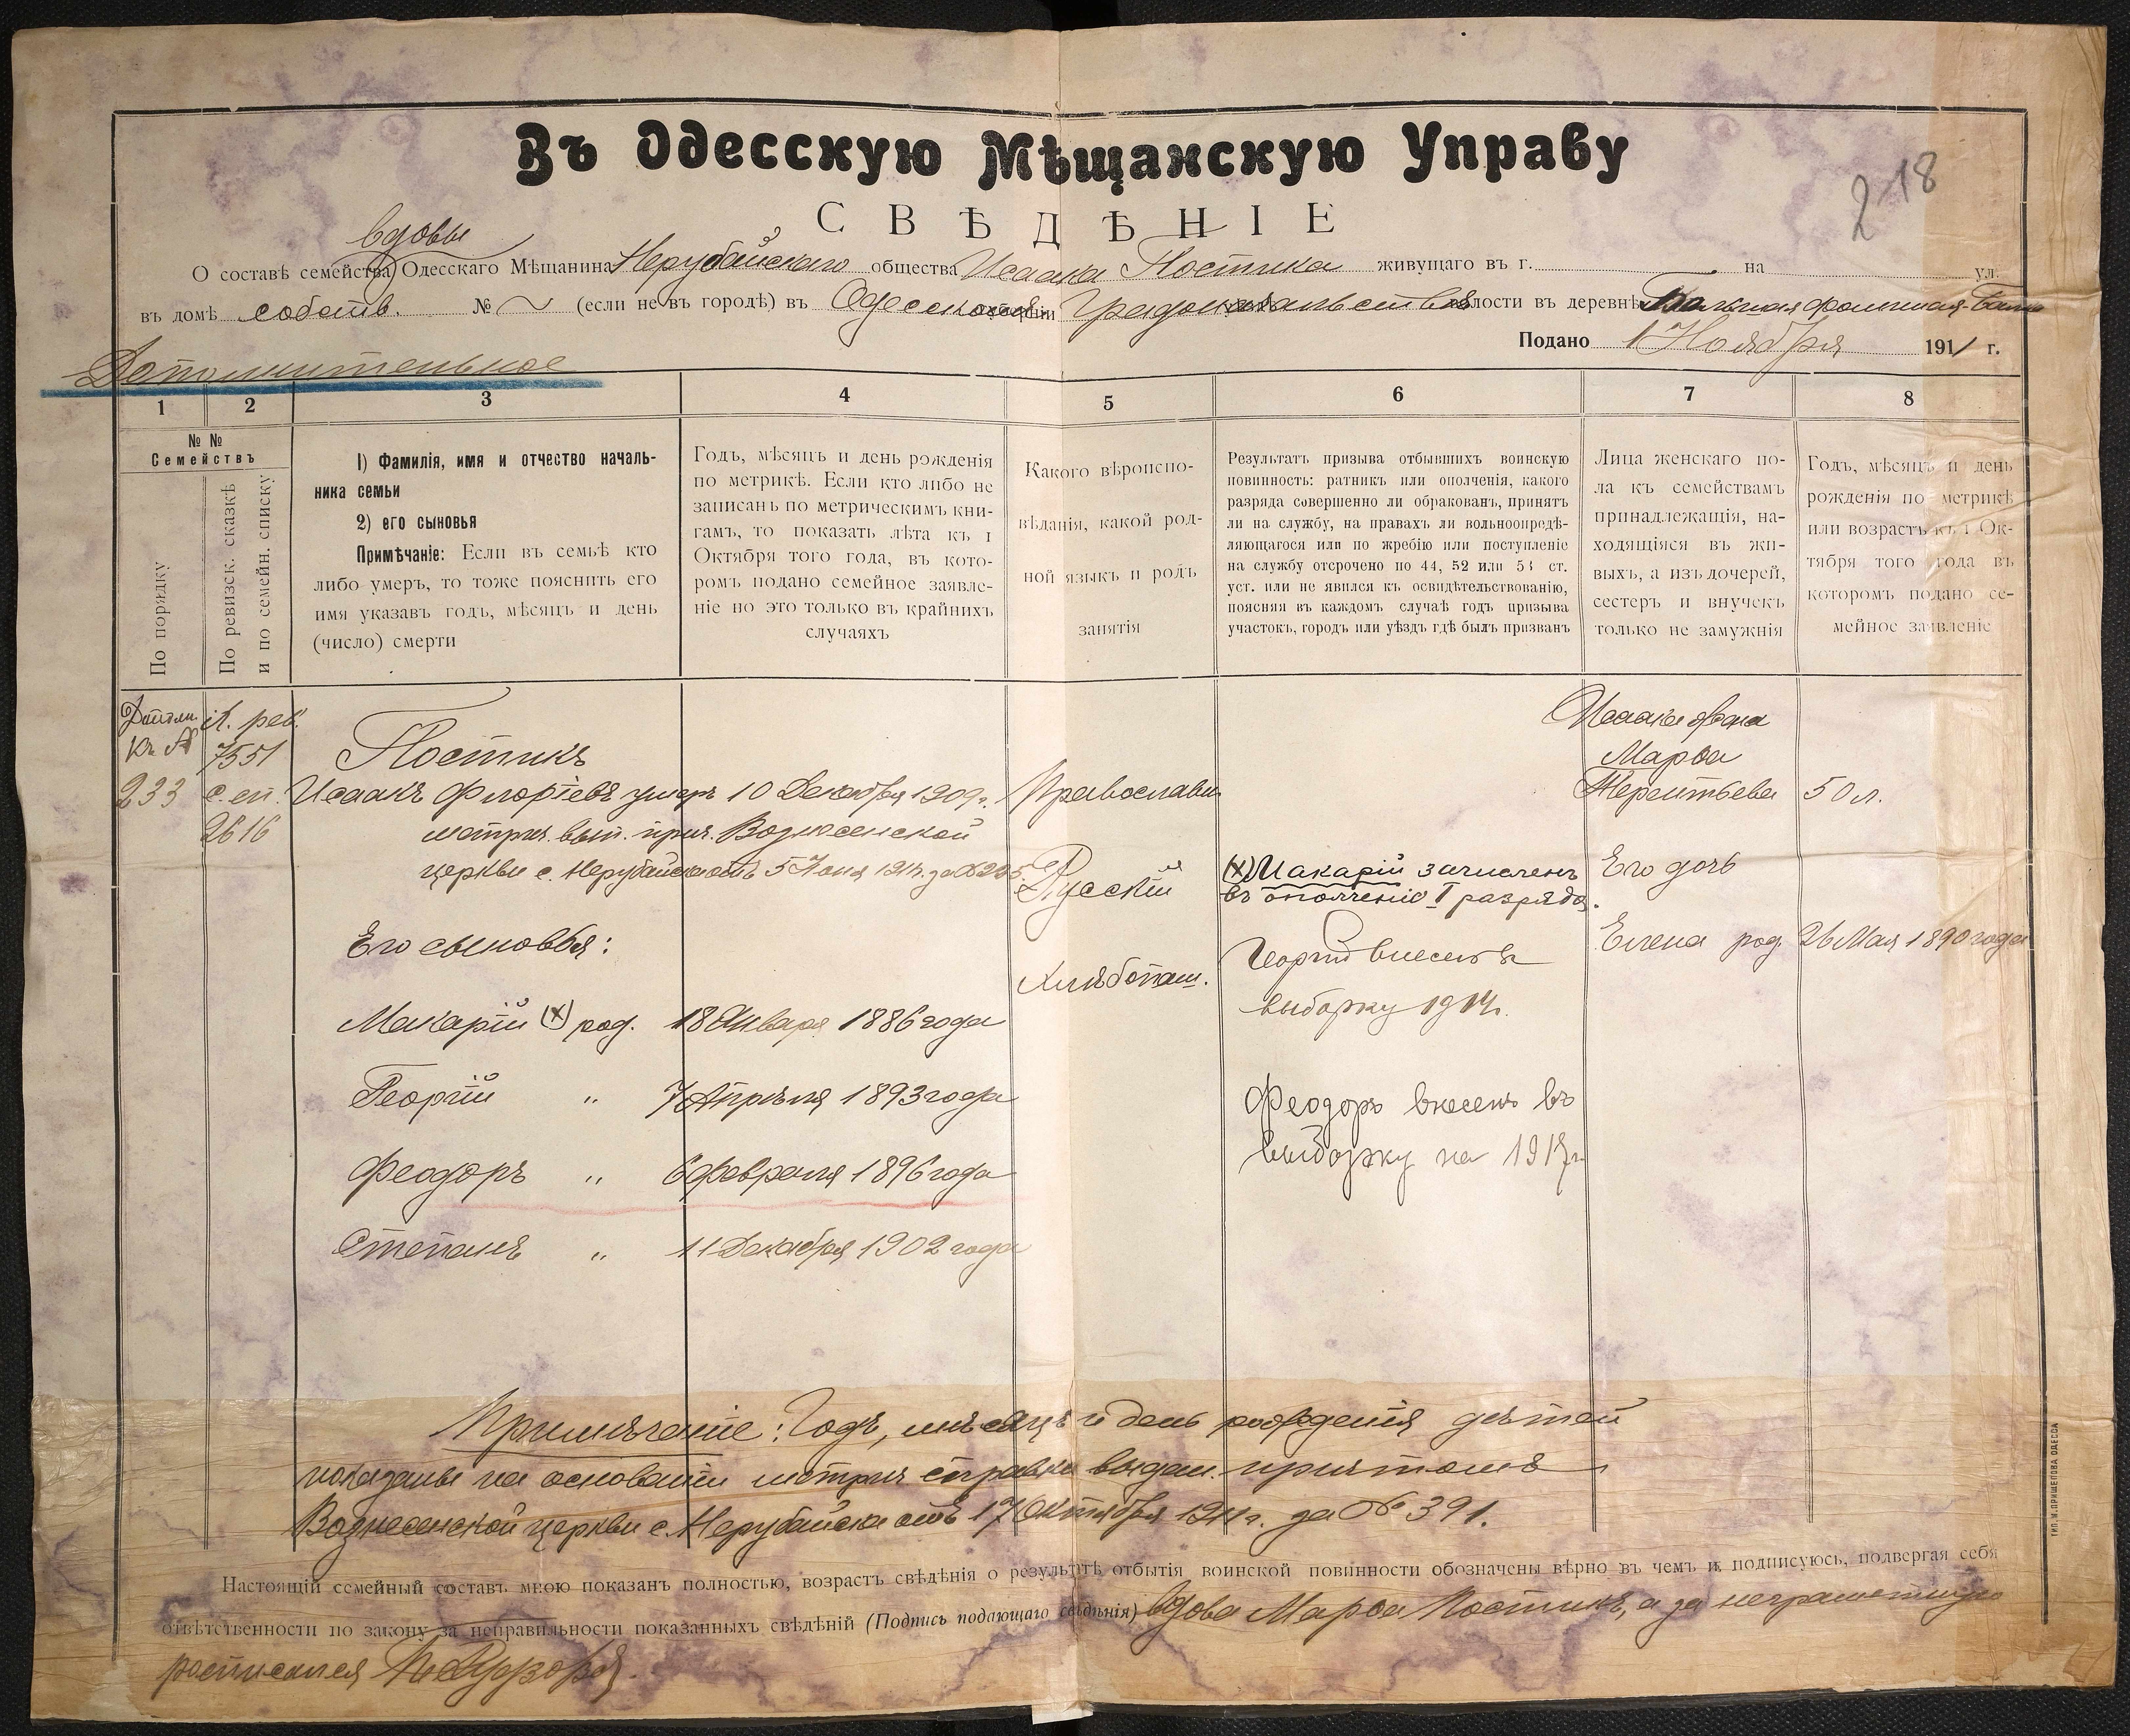 Въ Одесскую Мѣщанскую Управу
2 18
СВѢДѢНІЕ
вдовы
О составѣ семейства Одесскаго Мѣщанина Нерубайскаго общества Исаака Постика живущаго въ г. на ул.
въ домѣ собств. № (если не въ городѣ) въ Одесскомъ Градоначальствѣ волости въ деревнѣ
Подано 1 Ноября 1911 г.
Дополнительное
1 2 3 4 5 6 7 8
№ №
Семействъ
По порядку
По ревизск. сказкѣ
и по семейн. списку
1) Фамилія, имя и отчество началь-
ника семьи
2) его сыновья
Примѣчаніе: Если въ семьѣ кто
либо умеръ, то тоже пояснить его
имя указавъ годъ, мѣсяцъ и день
(число) смерти
Годъ, мѣсяцъ и день рожденія
по метрикѣ. Если кто либо не
записанъ по метрическимъ кни-
гамъ, то показать лѣта къ 1
Октября того года, въ кото-
ромъ подано семейное заявле-
ніе но это только въ крайнихъ
случаяхъ
Какого вѣроиспо-
вѣданія, какой род-
ной языкъ и родъ
занятія
Результатъ призыва отбывшихъ воинскую
повинность: ратникъ или ополченія, какого
разряда совершенно ли обракованъ, принятъ
ли на службу, на правахъ ли вольноопредѣ-
ляющагося или по жребію или поступленіе
на службу отсрочено по 44, 52 или 53 ст.
уст. или не явился къ освидѣтельствованію,
поясняя въ каждомъ случаѣ годъ призыва
участокъ, городъ или уѣздъ гдѣ былъ призванъ
Лица женскаго по-
ла къ семействамъ
принадлежащія, на-
ходящіяся въ жи-
выхъ, а изъ дочерей,
сестеръ и внучекъ
только не замужнія
Годъ, мѣсяцъ и день
рожденія по метрикѣ
или возрастъ къ 1 Ок-
тября того года въ
которомъ подано се-
мейное заявленіе
къ №
233
рев.
7551
с. сп.
2616
Постикъ
Исаакъ Флоріевъ умеръ 10 Декабря 1909 г.
метрич. вып. прич. Вознесенской
церкви с. Нерубайска отъ 5 1911 г. за № 225.
Его сыновья:
Макарій (х) род. 18 Января 1886 года
Георгій " 7 Апрѣля 1893 года
Феодоръ " 6 Февраля 1896 года
Степанъ " 11 Декабря 1902 года
Православн.
Русскій
Хлѣбопаш.
(х) Макарій зачисленъ
въ ополченіе I разряда.
Георгій внесенъ въ
выборку 1914 г.
Феодоръ внесенъ въ
выборку на 1917 г.
Исаака жена
Марѳа
Терентьева 50 л.
Его дочь
Елена род. 26 Мая 1890 года
Примѣчаніе: Годъ, мѣсяцъ и день рожденія дѣтей
показаны на основаніи метрич. справки выдан. причтомъ
Вознесенской церкви с. Нерубайска отъ 17 Октября 1911 г. за № 391.
Настоящій семейный составъ мною показанъ полностью, возрастъ свѣдѣнія о результатѣ отбытія воинской повинности обозначены вѣрно въ чемъ и подписуюсь, подвергая себя
отвѣтственности по закону за неправильности показанныхъ свѣдѣній (Подпись подающаго свѣдѣнія) вдова Марѳа Постикъ, а за неграмотную
росписался
ТИП. М. ПРИШЕПОВА ОДЕССА